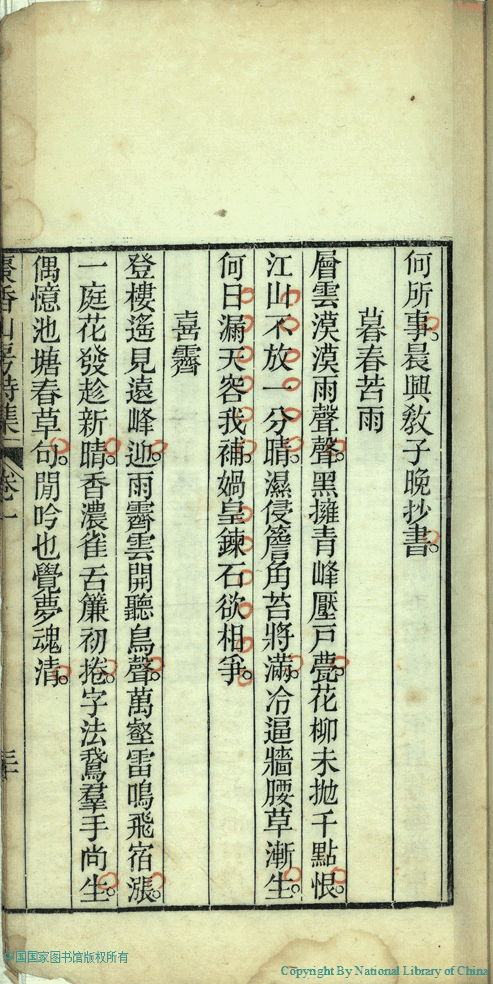 何所事晨興教子晚抄書
暮春苦雨
層雲漠漠雨聲聲黑擁青峰壓戶甍花柳未拋千點恨
江山不放一分晴濕侵簷角苔將滿冷逼牆腰草漸生
何日漏天容我補媧皇鍊石欲相爭
喜霽
登樓遙見遠峰迎雨霽雲開聽鳥聲萬壑雷鳴飛宿漲
一庭花發趁新晴香濃雀舌簾初捲字法鵞羣手尚生
偶憶池塘春草句閒吟也覺夢魂清
香山房詩集 卷一
中国国家图书馆版权所有
Copyright By National Library of China